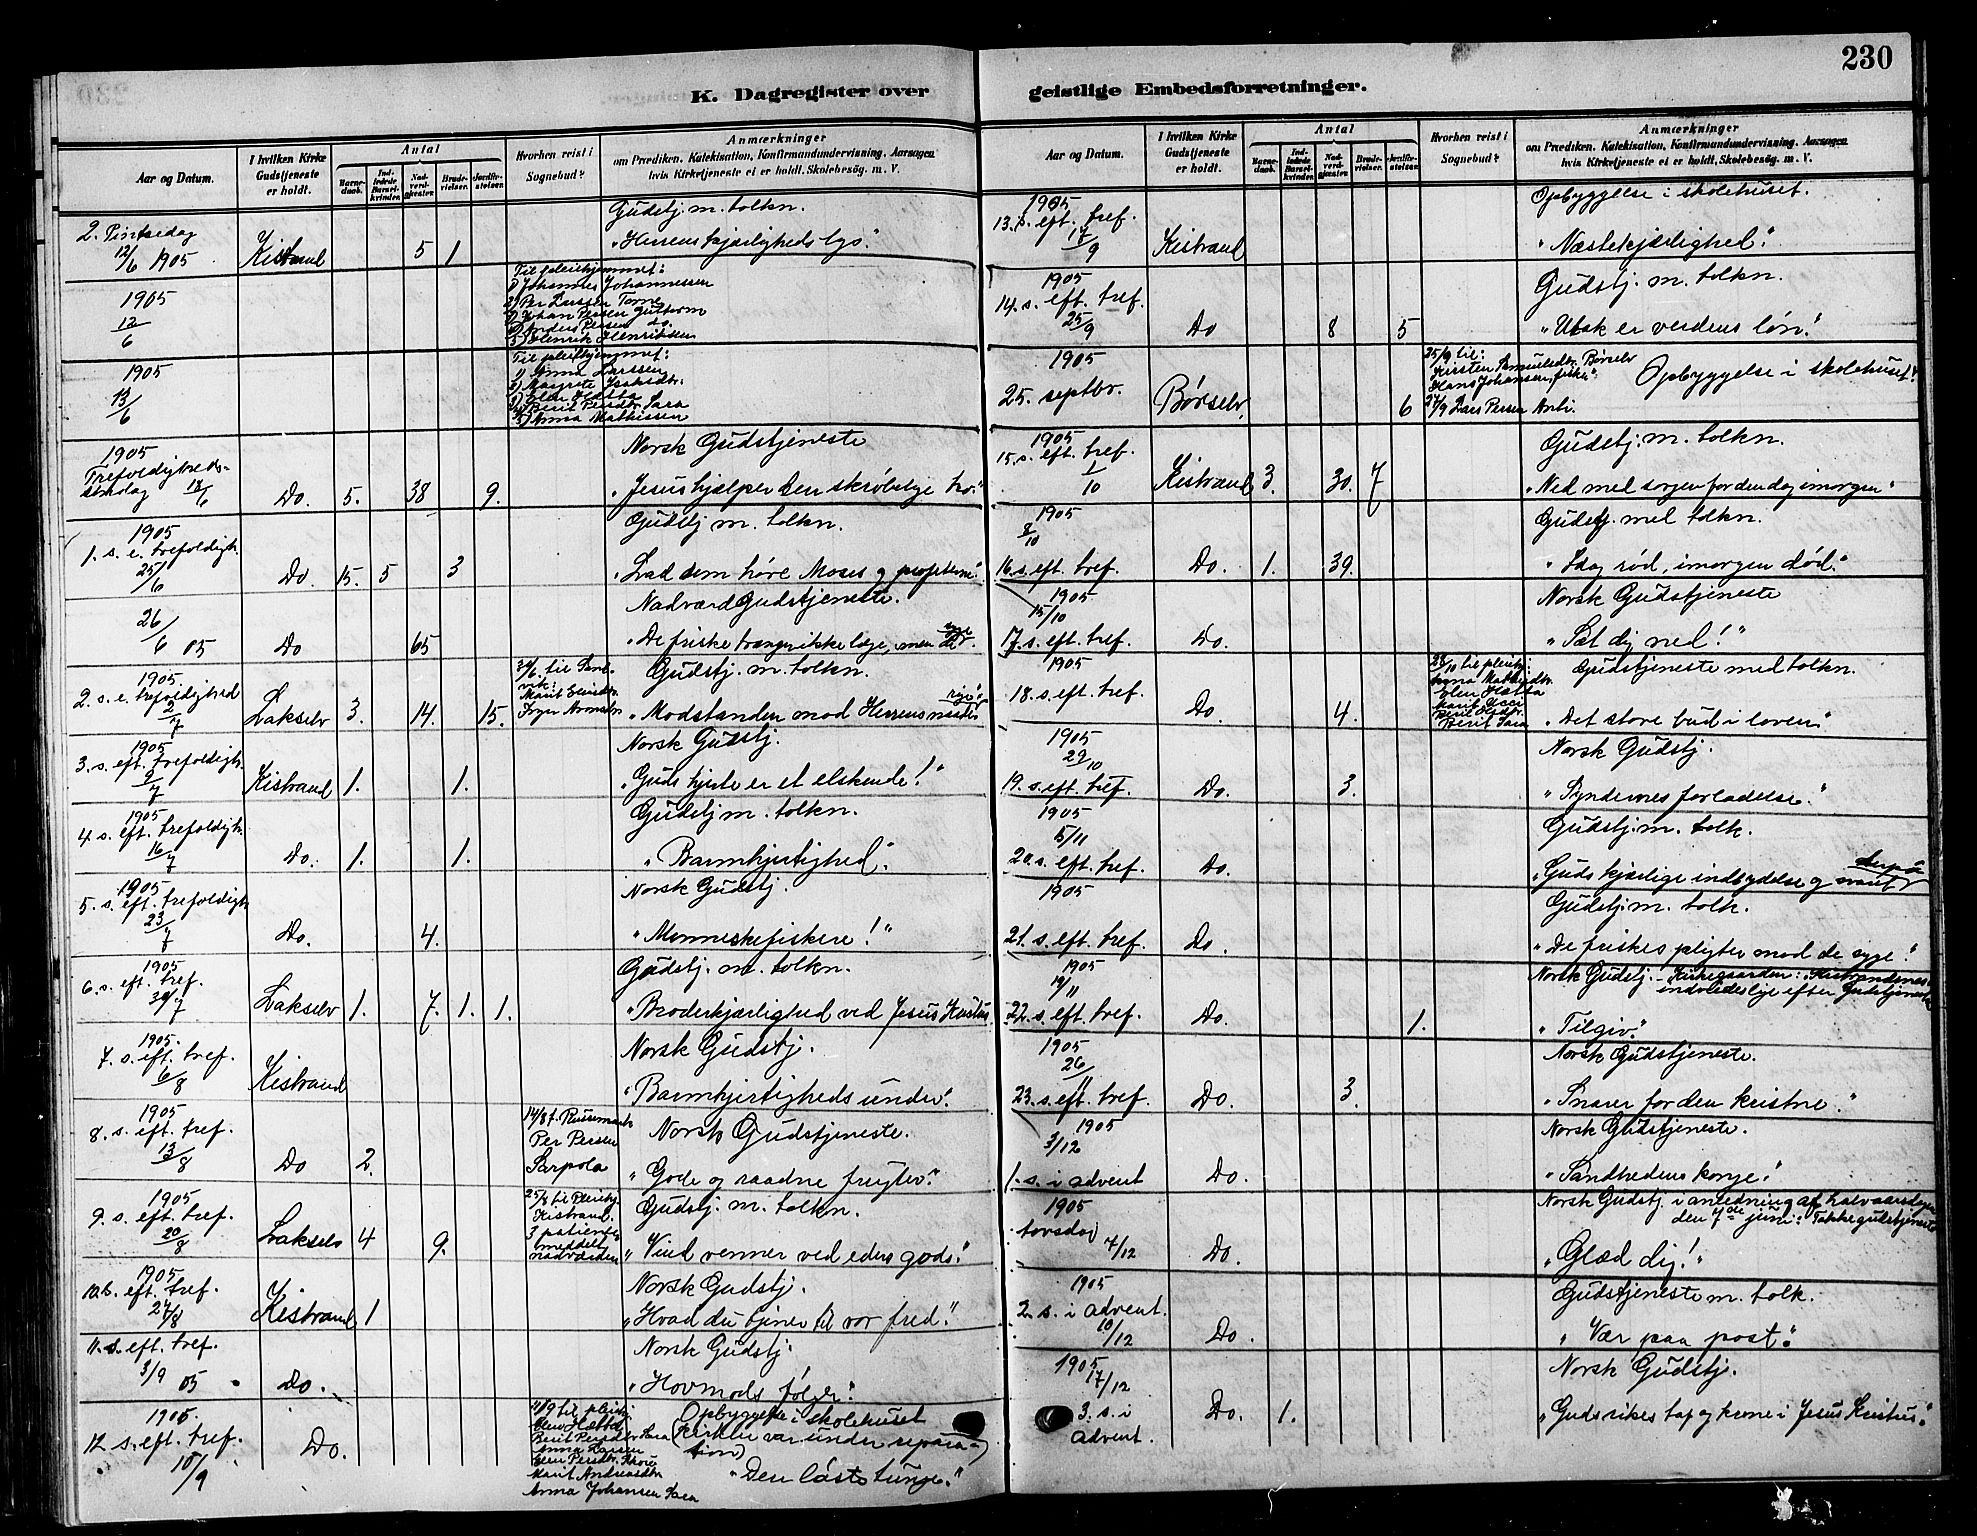 230
K. Dagregister over geistlige Embedsforretninger.
Aar og Datum.
I hvilken Kirke Gudstjeneste er holdt.
Antal
Barnedaab.
Indledede Barselkvinder.
Nadverdgjæster.
Brudevielser.
Jordfæstelser.
Hvorhen reist i Sognebud?
Anmærkninger
om Prædiken, Katekisation, Konfirmandundervisning, Aarsagen
hvis Kirketjeneste ei er holdt, Skolebesøg. m. V.
2. Pintsedag
12/6 1905 Kistrand 5 1
Gudstj. m. tolkn.
"Herrens kjærligheds lys."
1905
12/6
Til pleiehjemmet:
1) Johannes Johannessen
2) Per Larssen Torne
3) Johan Persen Guttorm
4) Anders Persen do.
5) Henrik Henriksen
1905
13/6
Til pleiehjemmet:
1) Anna Larssen
2) Margrete Isaksdtr.
3) Elen Hætta
4) Berit Persdtr. Sara
5) Anna Mathissen
1905
Trefoldigheds-
søndag 18/6 Do. 5. 38 9.
Norsk Gudstjeneste
"Jesus hjælper den skrøbelige tro."
1905
1. s. e. trefoldigh.
25/6 Do. 15. 5 3
Gudstj m. tolkn.
"Lad dem høre Moses og profeterne."
26/6 05 Do 65
Nadværd Gudstjeneste.
"De friske trænger ikke læge, men de syge".
1905.
2. s. e. trefoldighed
2/7 Lakselv 3. 14. 15.
Gudstj. m. tolkn.
"Modstanden mod Herrens naades rige"
1905
3. s. eft. trefoldigh.
9/7 Kistrand 1. 1.
Norsk Gudstj.
"Guds hjerte er et elskende!"
1905
4 s. eft. trefoldigh.
16/7 Do. 1. 1.
Gudstj m. tolkn.
"Barmhjertighed".
1905
5. s. eft. trefoldigh
23/7 Do. 4.
Norsk Gudstj.
"Menneskefiskere!"
1905
6. s. eft. tref.
30/7 Lakselv 1. 7. 1. 1.
Gudstj. m. tolkn.
"Broderkjærlighed ved Jesus Kristus
1905.
7. s. eft. tref.
6/8 Kistrand
Norsk Gudstj.
"Barmhjertigheds under".
1905
8. s. eft. tref.
13/8 Do 2.
14/8 t. Russemark
Per Persen
Sarpola
Norsk Gudstjeneste.
"Gode og raadne frugter."
1905
9. s. eft. tref.
20/8 Lakselv 4 9.
25/8 til Pleiehj.
Kistrand.
3 patienter
meddelt
nadværden
Gudstj. m. tolkn.
"Vind venner ved eders gods."
1905
10 s. eft. tref.
27/8 Kistrand 1
Norsk Gudstj.
"Hvad du tjener til vor fred."
11. s. eft. tref.
3/9 05 Do.
Norsk Gudstj.
"Hovmods følger."
1905
12 s. eft. tref.
10/9 Do.
11/9 til pleiehj.
Elen Hætta
Berit Persdtr Sara
Anna Larsen
Marit Andreasdtr
Anna Johansen Sara
Opbyggelse i skolehuset
(kirken var under repara-
tion)
"Den løste tunge."
Aar og Datum.
I hvilken Kirke Gudstjeneste er holdt.
Antal
Barnedaab.
Indledede Barselkvinder.
Nadverdgjæster.
Brudevielser.
Jordfæstelser.
Hvorhen reist i Sognebud?
Anmærkninger
om Prædiken, Katekisation, Konfirmandundervisning, Aarsagen
hvis Kirketjeneste ei er holdt, Skolebesøg. m. V.
1905
13. s. eft. tref.
17/9 Kistrand
Opbyggelse i skolehuset.
"Næstekjærlighed."
1905
14. s. eft. tref.
25/9 Do 8 5
Gudstj. m. tolkn.
"Utak er verdens løn."
1905
25. septbr. Børselv. 6
25/9 til:
Kirsten Samuelsdtr. Børselv
Hans Johansen, fisker
27/9 Lars Persen Anti.
Opbyggelse i skolehuset.
1905
15. s. eft. tref.
1/10 Kistrand 3. 30. 7
Gudstj. m. tolkn.
"Ned med sorgen for den dag imorgen"
1905
8/10
16. s. eft. tref. Do. 1. 39.
Gudstj. med tolkn.
"Idag rød, imorgen død."
1905
15/10
17. s. eft. tref. Do.
Norsk Gudstjeneste
"Sæt dig ned!"
1905
18. s. eft. tref. Do. 4.
23/10 til pleiehj.
Anna Mathisdtr.
Elen Hætta
Berit Sara
Gudstjeneste med tolkn.
"Det store bud i loven"
1905
29/10
19. s. eft. tref. Do. 3.
Norsk Gudstj.
"Syndernes forladelse."
1905
5/11
20. s. eft. tref. Do.
Gudstj. m. tolk.
"Guds kjærlige indbydelse og svaret derpaa
1905
21. s. eft. tref. Do.
Gudstj. m. tolk.
"De friskes pligter mod de syge."
1905
19/11
22. s. eft. tref. Do. 1.
Norsk Gudstj. - Kirkegaarden: Kistrandnes
indviedes lige efter Gudstjenesten
"Tilgiv."
1905
26/11
23. s. eft. tref. Do. 3.
Norsk Gudstjeneste.
"Snarer for den kristne."
1905
3/12
1. s. i advent Do.
Norsk Gudstjeneste.
"Sandhedens konge."
1905
torsdag
7/12 Do.
Norsk Gudstj. i anledning af halvaarsdagen
den 7de juni: Takkegudstjeneste
"Glæd dig!"
1905
2. s. i advent.
10/12 Do.
Gudstjeneste m. tolk.
"Vær paa post."
1905
17/12
3. s. i
advent. Do. 1.
Norsk Gudstj.
"Guds rikes tap og krone i Jesus Kristus."